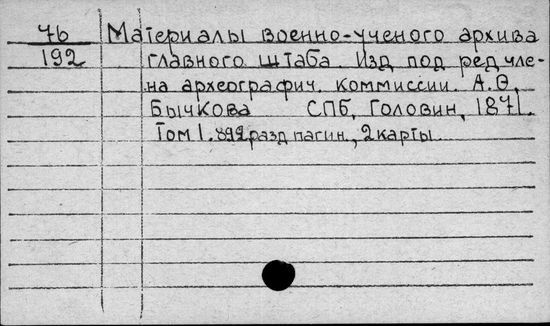 76 Материалы военно-ученого архива
192 главного штаба. Изд под ред чле-
на археографич. коммиссии. А.Ѳ.
Бычкова СПб, Головин, 1871.
Том 1. 892 разд пагин., 2 карты.